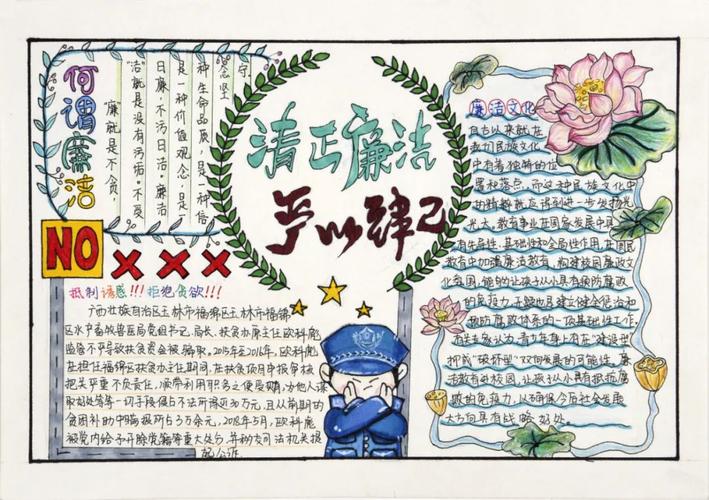 何谓廉洁
“廉就是不贪,
“洁”就是没有污垢。不受
曰廉,不污曰洁。廉洁
是一种价值观念,是一
种生命品质,是一种信
念坚
守
清正廉洁
严以律己
NO
抵制诱惑!!!拒绝贪欲!!!
广西壮族自治区玉林市福绵区玉林市福绵
区水产畜牧兽医局党组书记、局长、扶贫办原主任欧科彪
监管不力导致扶贫资金被骗取。2015年至2016年,欧科彪
在担任福绵区扶贫办主任期间,在扶贫项目申报审核
把关严重不负责任,
取好处等等一切手段侵占不法所得近30万元,且从前期的
贫困补助中瞒报所占3万余元,2018年5月,欧科彪
被党内给予开除党籍等重大处分,并移交司法机关提
起公诉.
廉洁文化
自古以来就在
我们民族文化
中有着独特的位
置和落点,而这种民族文化中
的精髓就应得到进一步发扬光
光大,教育事业在国家发展中具
有先导性、基础性和全局性作用,在国民
教育中加强廉洁教育,构建校园廉政文
化氛围,能够让孩子从小具有预防腐败
的免疫力,
预防腐败体系的一项基础性工作,
抑或“破坏型”双向发展的可能性,廉
洁教育进校园,让孩子从小具有抵抗腐
败的免疫力,以确保今后社会发展
大方向具有战略好处。